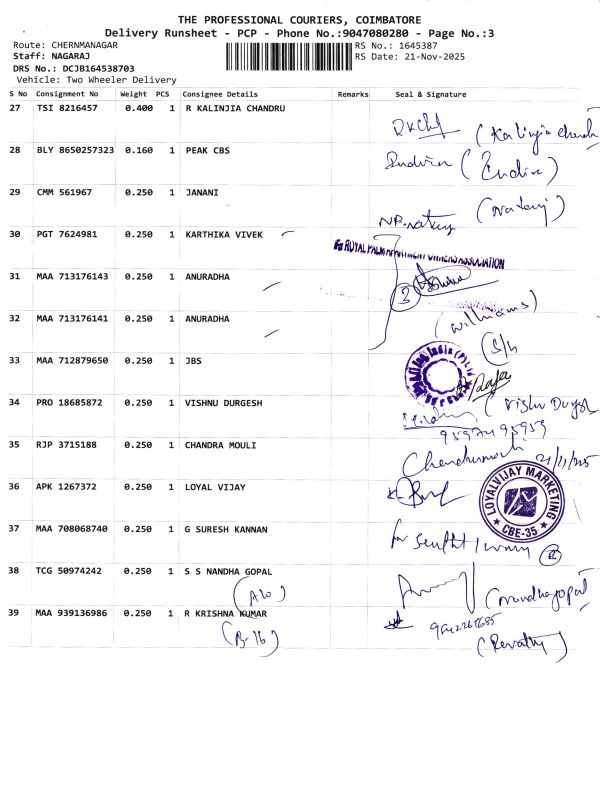 THE PROFESSIONAL COURIERS, COIMBATORE
Delivery Runsheet - PCP - Phone No.:9047080280 - Page No.:3
Route: CHERNMANAGAR RS No.: 1645387
Staff: NAGARAJ RS Date: 21-Nov-2025
DRS No.: DCJB164538703
Vehicle: Two Wheeler Delivery
S No Consignment No Weight PCS Consignee Details Remarks Seal & Signature
27 TSI 8216457 0.400 1 R KALINJIA CHANDRU
(Kalinjia
28 BLY 8650257323 0.160 1 PEAK CBS
29 CMM 561967 0.250 1 JANANI
(Nataraj)
30 PGT 7624981 0.250 1 KARTHIKA VIVEK
ROYAL PALM APARTMENT OWNERS ASSOCIATION
31 MAA 713176143 0.250 1 ANURADHA
3
32 MAA 713176141 0.250 1 ANURADHA
(Williams)
(S/4
33 MAA 712879650 0.250 1 JBS
India (P)
34 PRO 18685872 0.250 1 VISHNU DURGESH
(Vishnu Durgesh
9597495959
35 RJP 3715188 0.250 1 CHANDRA MOULI
Chandramouli 21/11/2025
36 APK 1267372 0.250 1 LOYAL VIJAY
LOYALVIJAY MARKETING
CBE-35
37 MAA 708068740 0.250 1 G SURESH KANNAN
for
38 TCG 50974242 0.250 1 S S NANDHA GOPAL
(A10) (Nandhagopal)
39 MAA 939136986 0.250 1 R KRISHNA KUMAR
(B-16)
(Revathy)